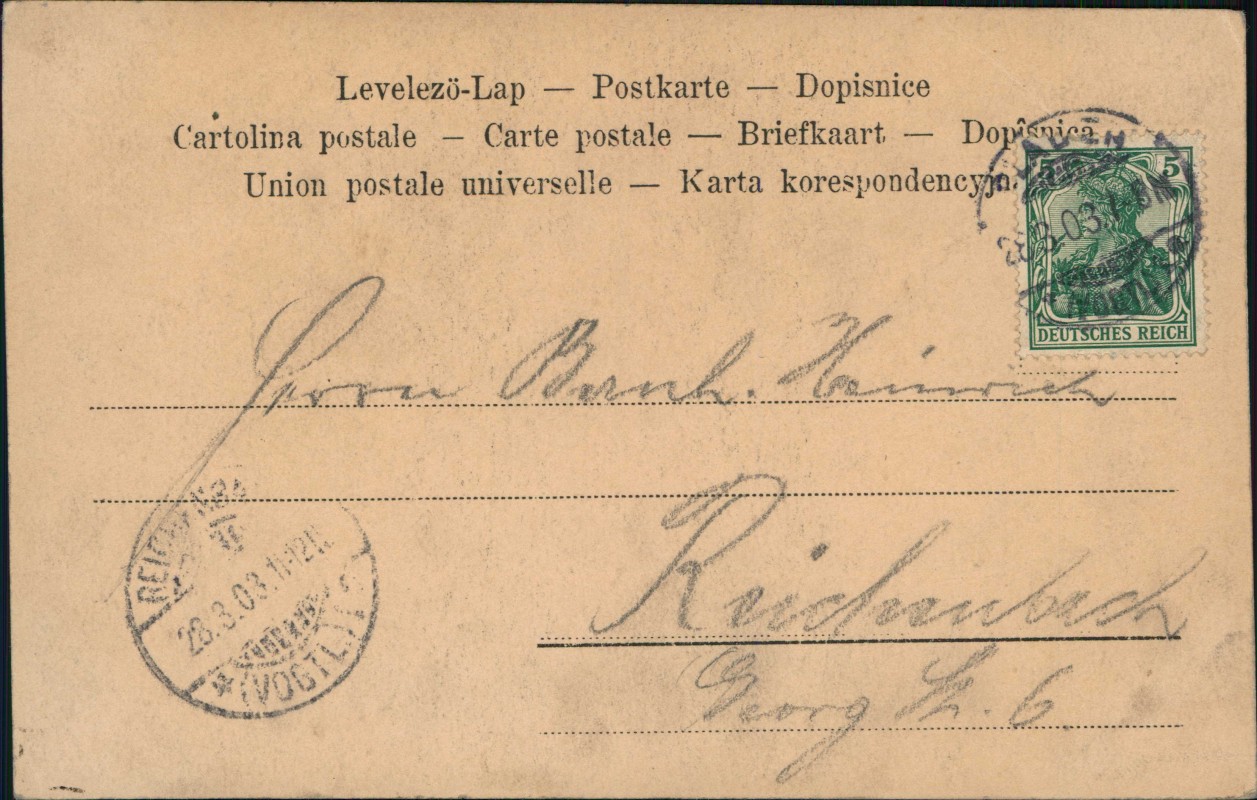 Levelezö-Lap — Postkarte — Dopisnice
Cartolina postale — Carte postale — Briefkaart — Dopisnica
Union postale universelle — Karta korespondencyjna
5 5
28.3.03. 7-8N.
(VOGTL.)
DEUTSCHES REICH
Herrn Bernh. Heinrich
REICHENBA
28.3.03.11-12N.
(VOGTL.)
Reichenbach
Georg St. 6